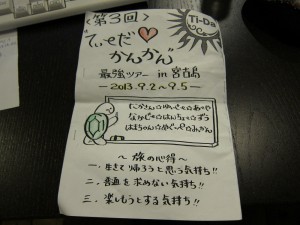 〈第3回〉
Ti-Da
てぃだ♡
かんかん
最強ツアー in 宮古島
－2013.9.2〜9.5－
〜 旅の心得 〜
一. 生きて帰ろうと思う気持ち!!
二. 普通を求めない気持ち!!
三. 楽しもうとする気持ち!!